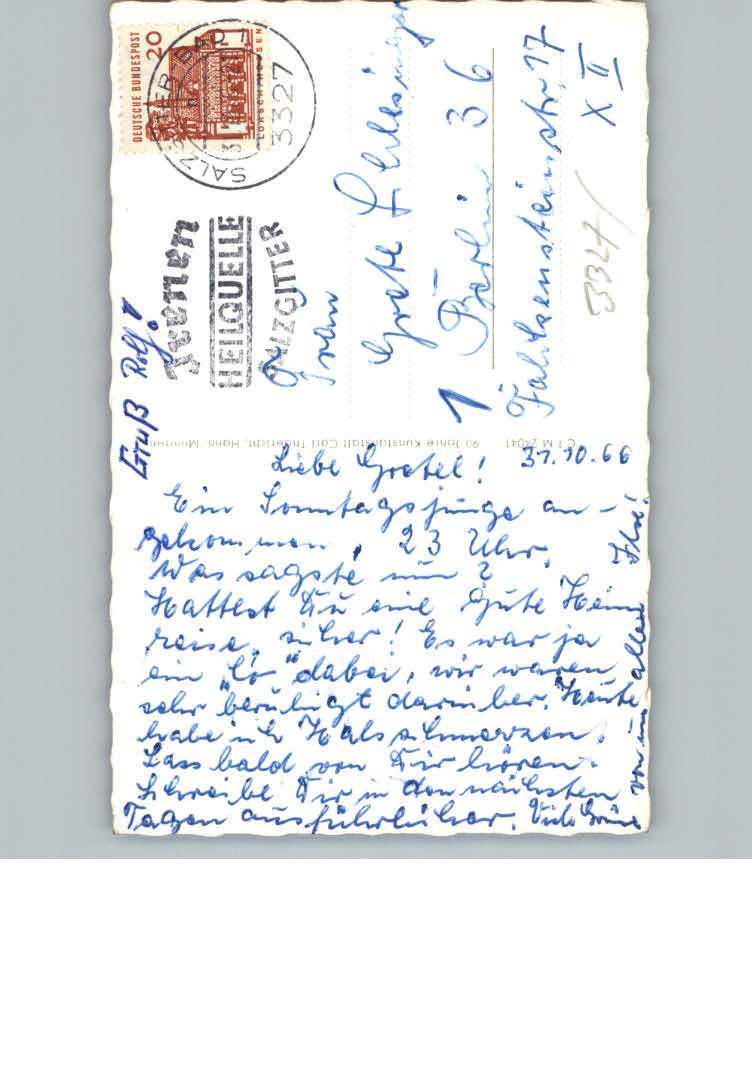 DEUTSCHE BUNDESPOST
20
LORSCH/HESSEN
3327
Frau
Grete Schlesinger
1 Berlin 36
Falckensteinstr. 17
X II
3327/
HEILQUELLE
SALZGITTER
Gruß Rolf!
C T M 24041 90 Jahre Kunstanstalt Carl Thoericht, Hann. Münden
31.10.66
Liebe Gretel!
Ein Sonntagsjunge an-
gekommen, 23 Uhr.
Was sagste nun?
Hattest Du eine gute Heim
reise, sicher! Es war ja
ein "Er" dabei, wir waren
sehr beruhigt darüber. Heute
habe ich Halsschmerzen.
Lass bald von Dir hören.
Schreibe Dir in den nächsten
Tagen ausführlicher. Viele Grüße
von uns allen Ilse!